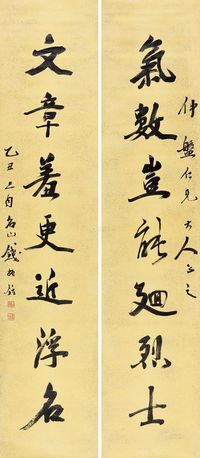 仲盤仁兄大人正之
氣數豈能廻烈士
文章羞更近浮名
乙丑 名山錢振鍠